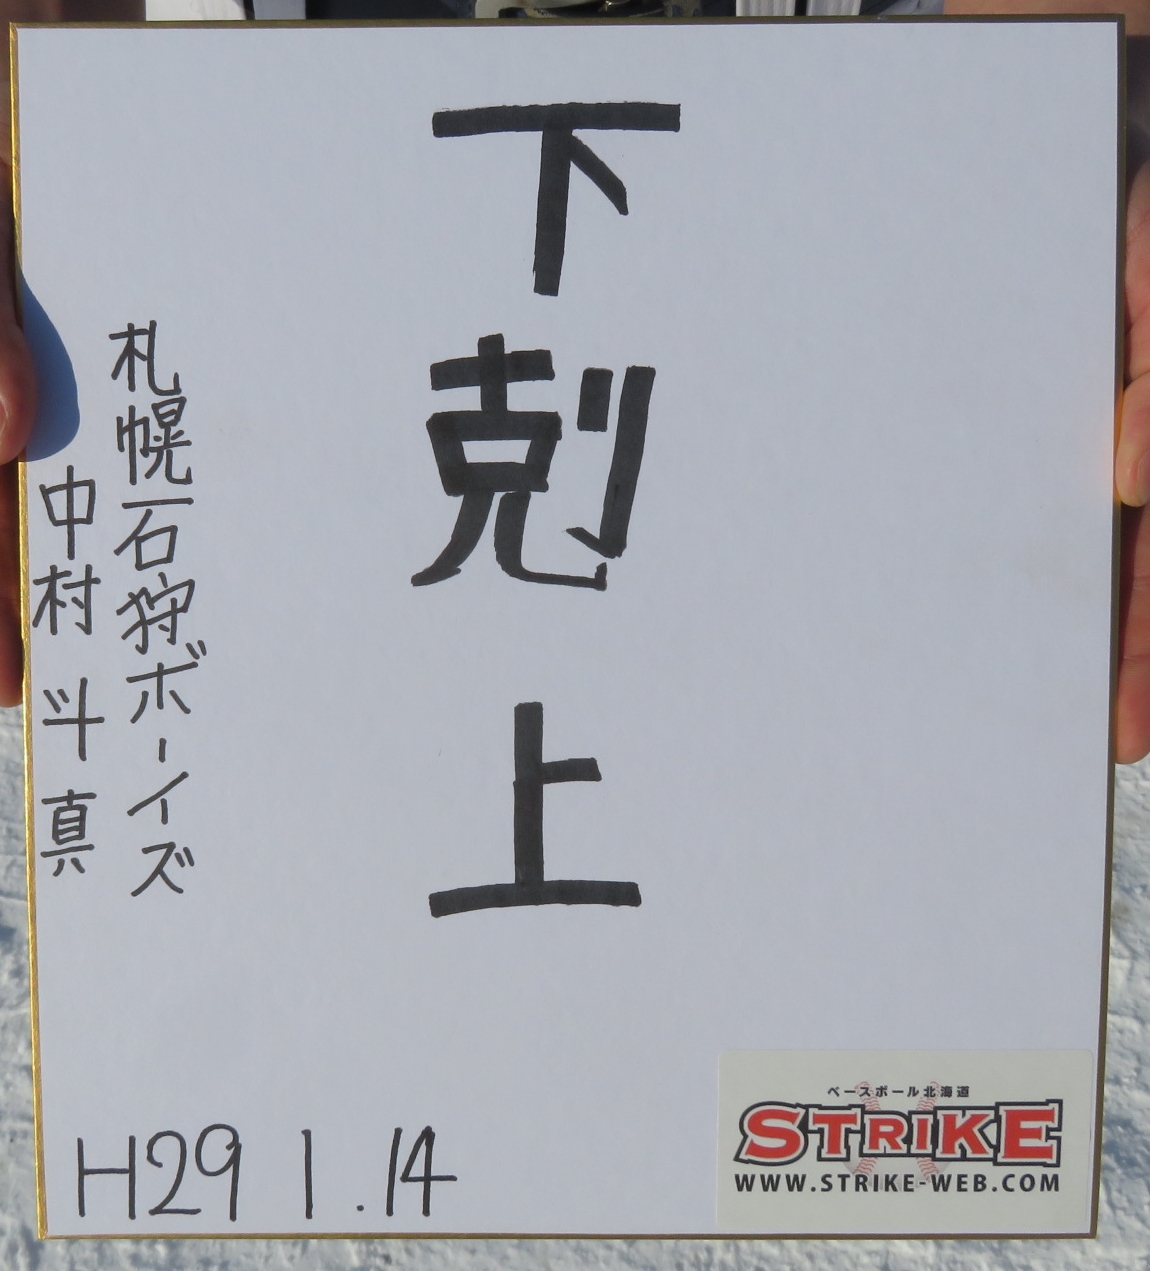 下剋上
札幌石狩ボーイズ
中村 斗真
H29 1.14
ベースボール北海道
STRIKE
WWW.STRIKE-WEB.COM